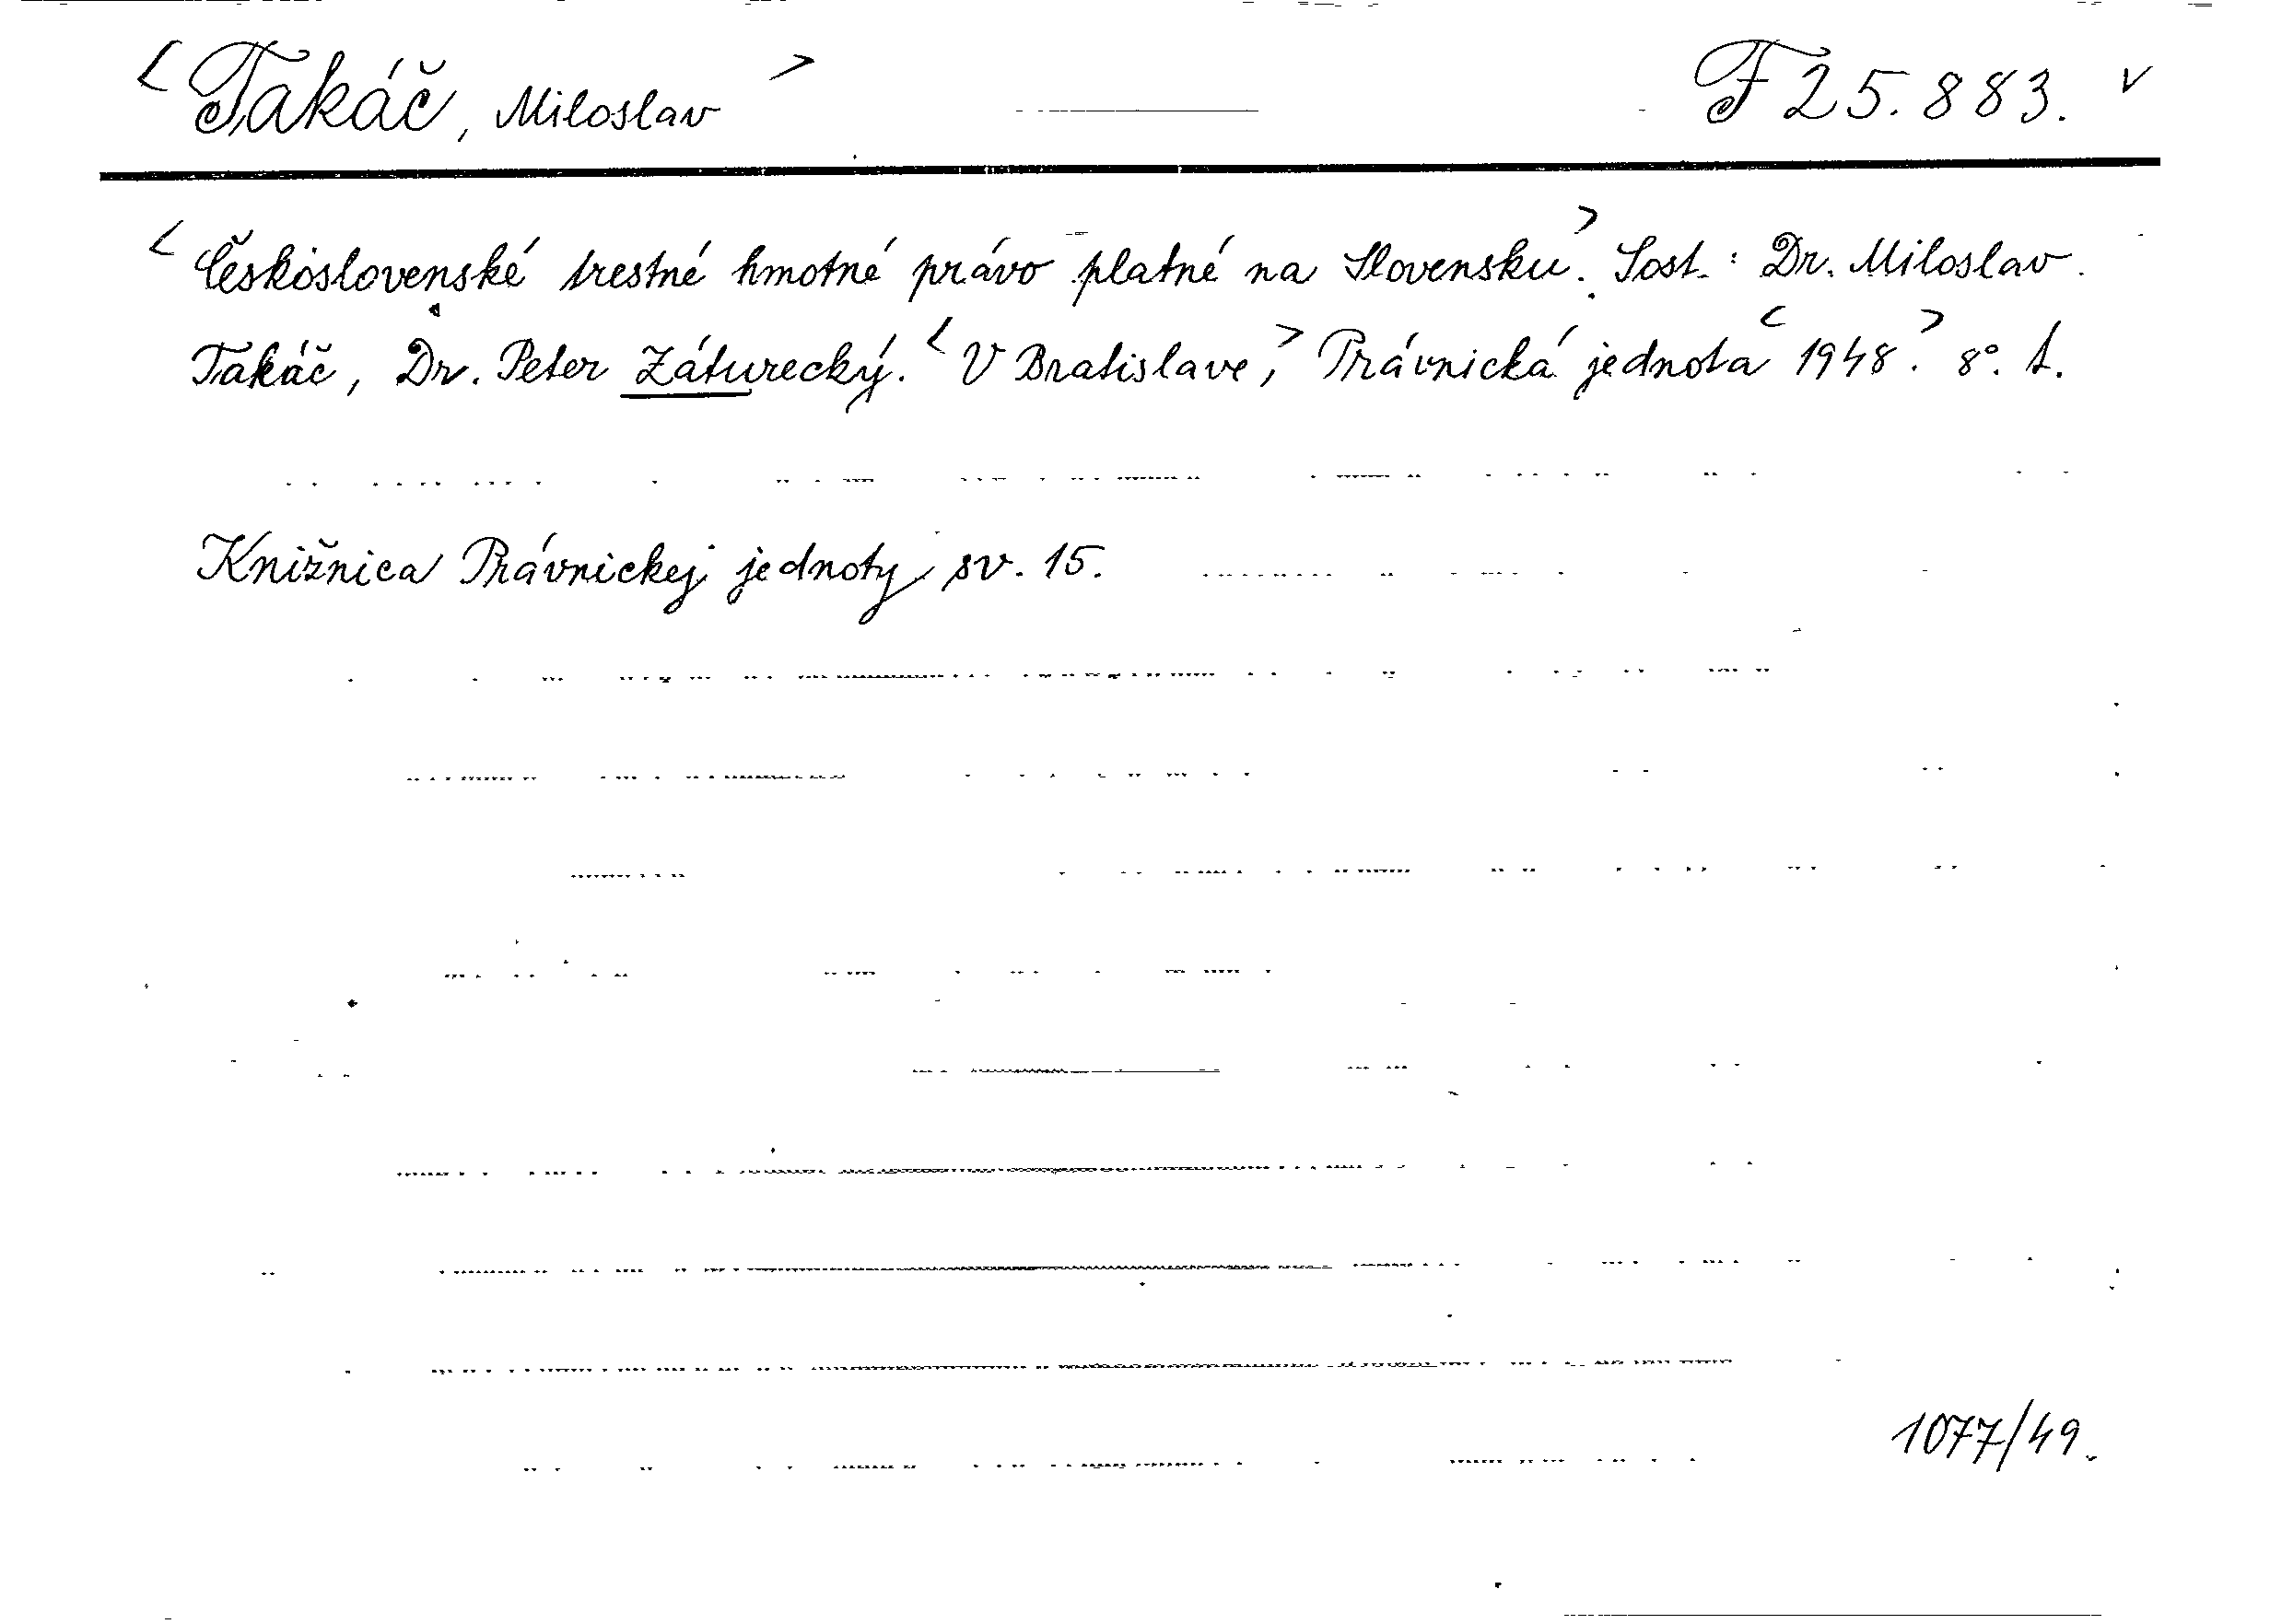 <Takáč, Miloslav> F 25.883. v
<Československé trestné hmotné právo platné na Slovensku>. Sost.: Dr. Miloslav
Takáč, Dr. Peter Záturecký. <V Bratislave,> Právnická jednota <1948>. 8°. t.
Knižnica Právnickej jednoty sv. 15.
1077/49.